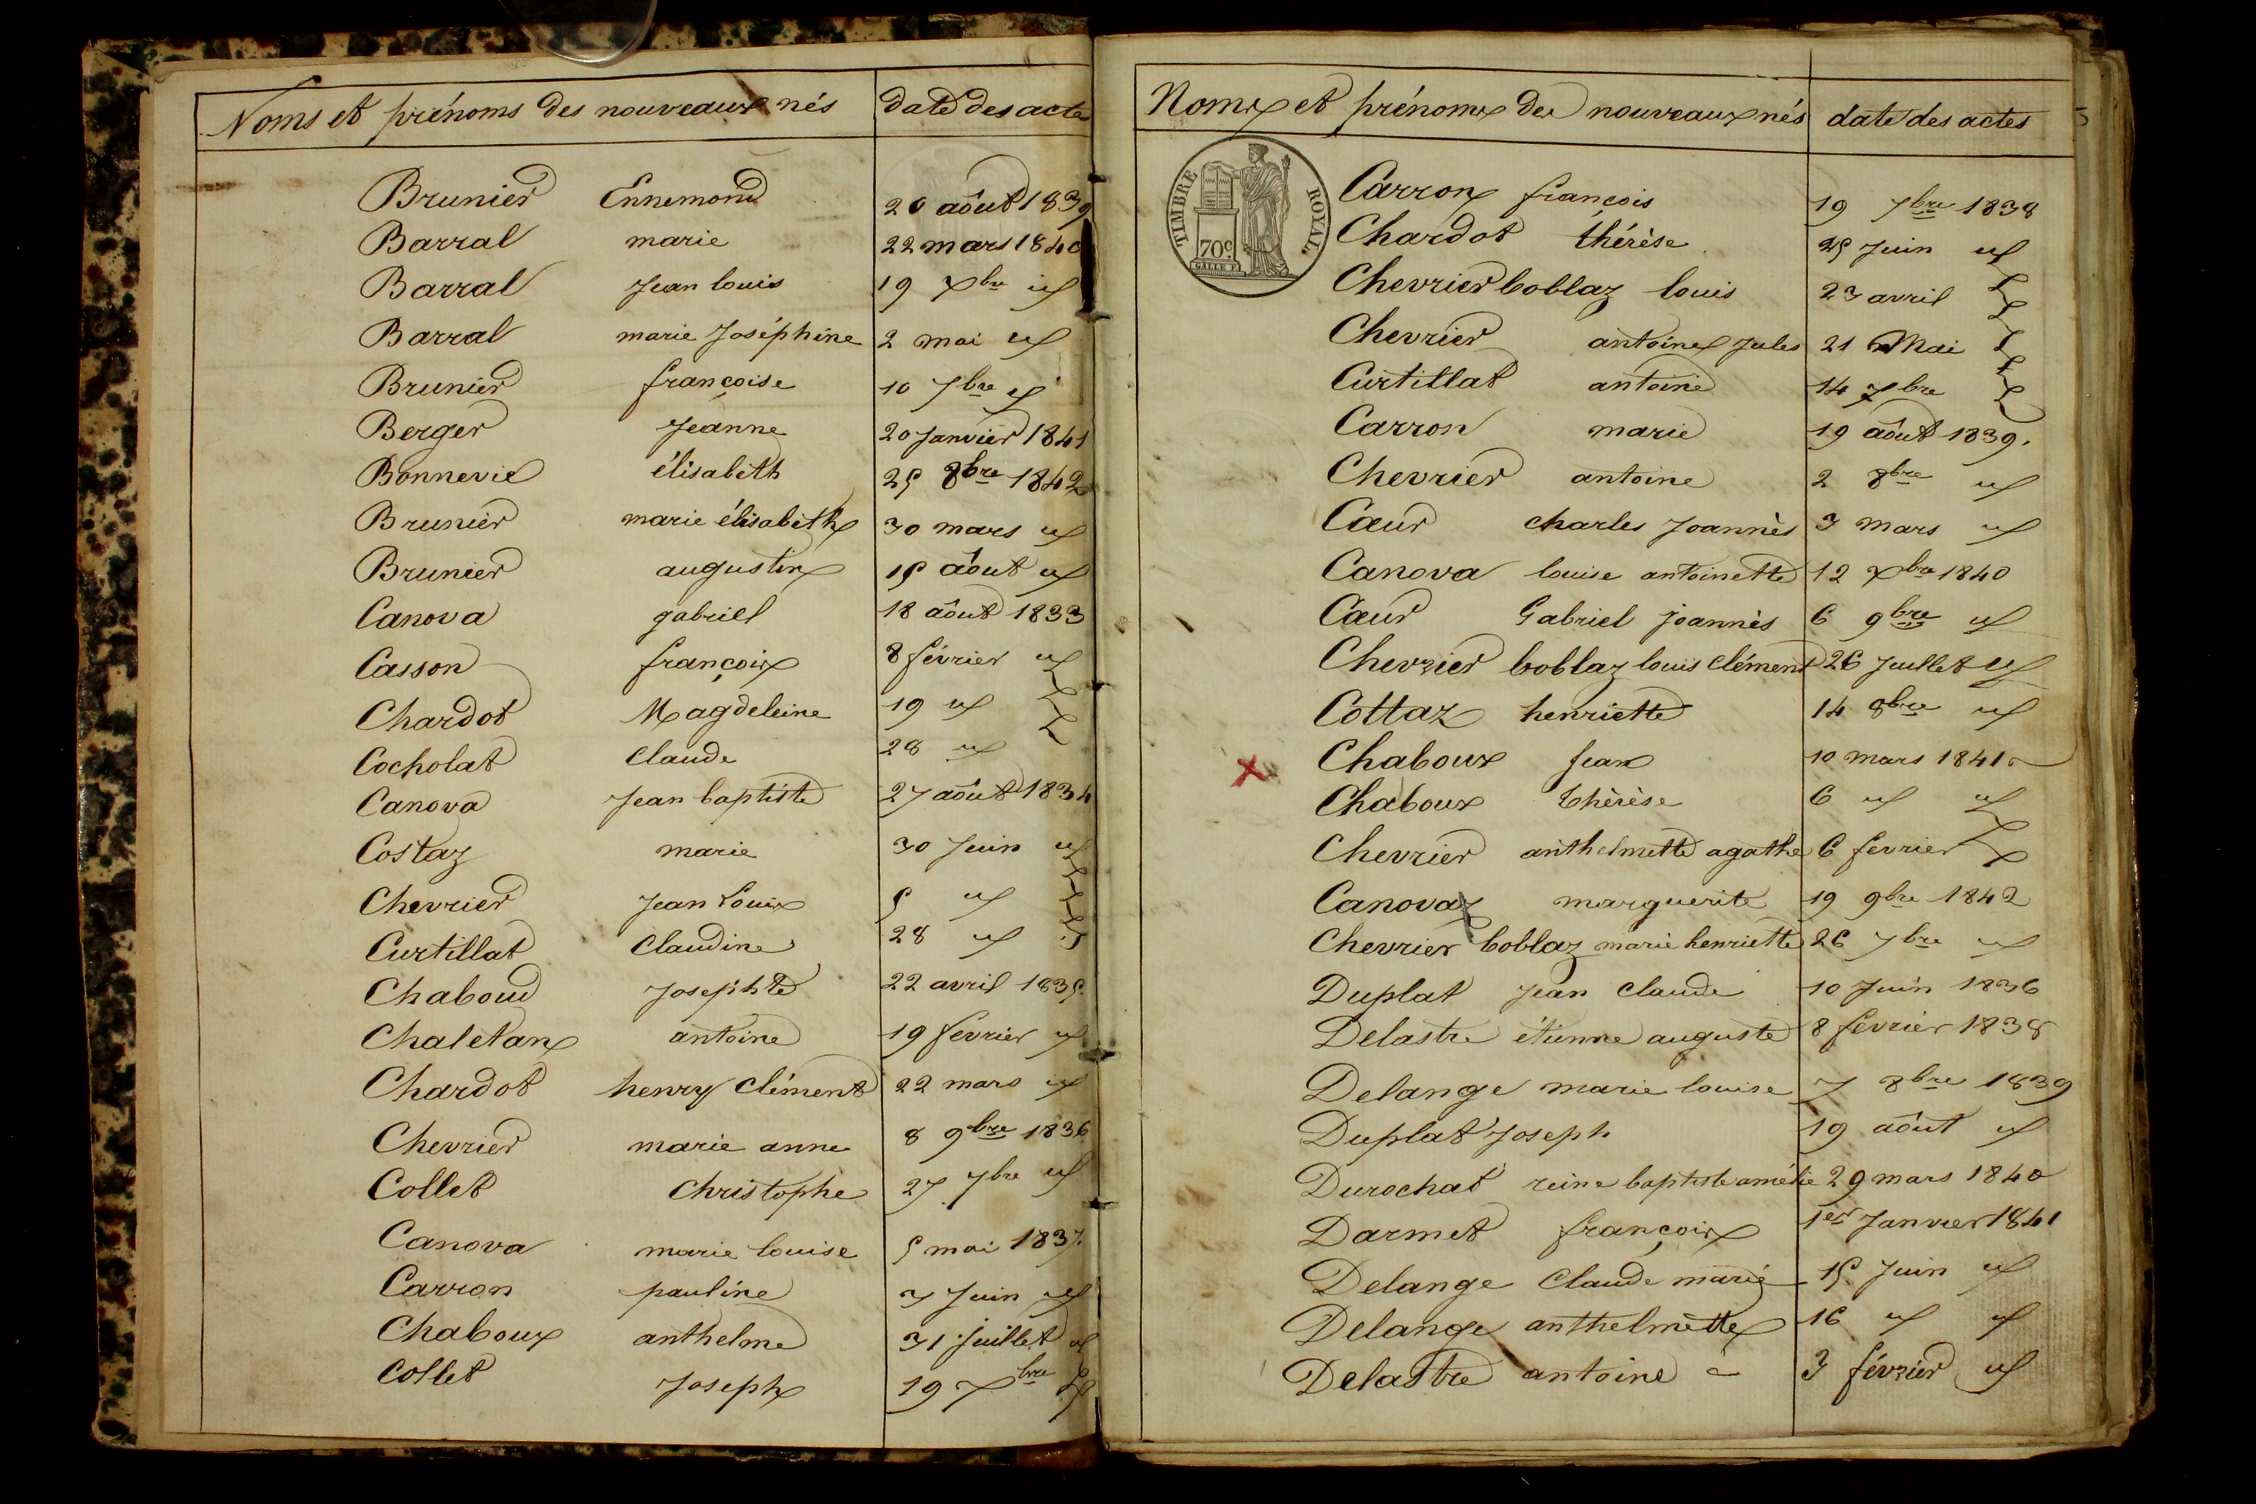 Noms et prénoms des nouveaux nés date des actes
Brunier Ennemond 20 aôut 1839
Barral marie 22 mars 1840
Barral Jean louis 19 xbre id
Barral marie Joséphine 2 mai id
Brunier françoise 10 7bre id
Berger Jeanne 20 Janvier 1841
Bonnevie élisabeth 25 8bre 1842
Brunier marie élisabeth 30 mars id
Brunier augustin 15 aôut id
Canova gabriel 18 aôut 1833
Casson françois 8 février id
Chardot Magdeleine 19 id
Cocholat Claude 28 id
Canova Jean baptiste 27 aôut 1834
Costaz marie 30 Juin id
Chevrier Jean Louis 5 id
Curtillat Claudine 28 id
Chaboud Josephte 22 avril 1835
Chaletan antoine 19 février id
Chardot henry Clément 22 mars id
Chevrier marie anne 8 9bre 1836
Collet Christophe 27 7bre id
Canova marie louise 5 mai 1837
Carron pauline 3 Juin id
Chaboux anthelme 31 juillet id
Collet Joseph 19 xbre id
Noms et prénoms des nouveaux nés date des actes
TIMBRE ROYAL
70c
Carron françois 19 7bre 1838
Chardot thérèse 25 Juin id
Chevrier boblaz louis 23 avril
Chevrier antoine Jules 21 Mai
Curtillat antoine 14 7bre
Carron marie 19 aôut 1839.
Chevrier antoine 2 8bre id
Cœur charles Joannès 3 mars id
Canova louise antoinette 12 xbre 1840
Cœur Gabriel joannès 6 9bre id
Chevrier boblaz louis clément 26 Juillet id
Cottaz henriette 14 8bre id
Chaboux Jean 10 mars 1841
Chaboux thèrèse 6 id id
Chevrier anthelmette agathe 6 fevrier
Canovaz marguerite 19 9bre 1842
Chevrier boblaz marie henriette 26 7bre id
Duplat Jean Claude 10 Juin 1836
Delastre étienne auguste 8 fevrier 1838
Delange marie louise 7 8bre 1839
Duplat Joseph 19 aôut id
Durochat reine baptiste amélie 29 mars 1840
Darmet françois 1er Janvier 1841
Delange Claude marie 15 Juin id
Delange anthelmette 16 id id
Delastre antoine 3 février id